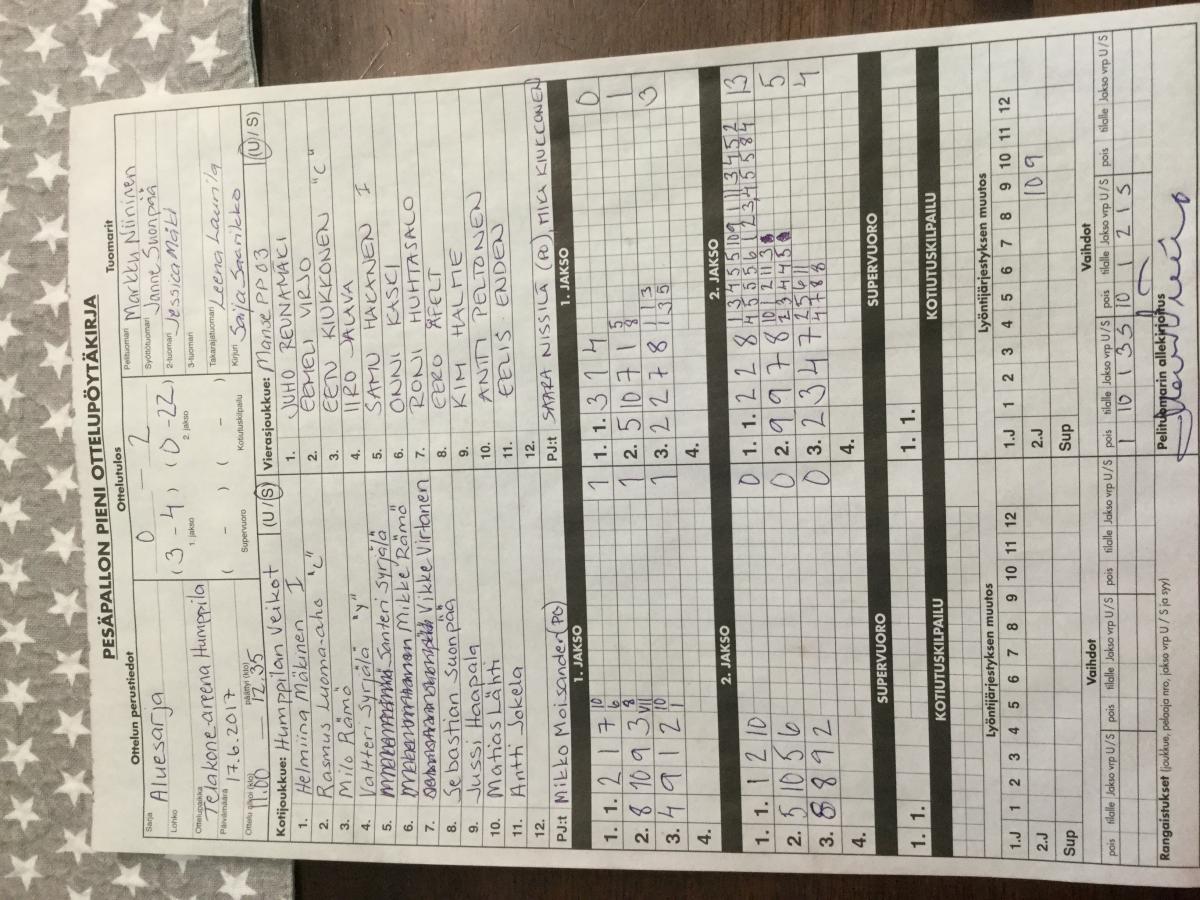 PESÄPALLON PIENI OTTELUPÖYTÄKIRJA
Ottelun perustiedot
Sarja
Aluesarja
Lohko
Ottelupaikka
Telakone-areena Humppila
Päivämäärä 17.6.2017
Ottelu alkoi (klo) 11.00 päättyi (klo) 12.35
Ottelutulos
0 — 2
( 3 - 4 ) ( 0 - 22 )
1. jakso 2. jakso
( - ) ( - )
Supervuoro Kotiutuskilpailu
Tuomarit
Pelituomari Markku Niininen
Syöttötuomari Janne Suonpää
2-tuomari Jessica Mäki
3-tuomari
Takarajatuomari Leena Laurila
Kirjuri Saija Saarikko
Kotijoukkue: Humppilan Veikot (U/S)
1. Helmiina Mäkinen I
2. Rasmus Luoma-aho "C"
3. Milo Rämö
4. Valtteri Syrjälä "y"
5. Santeri Syrjälä
6. Mikke Rämö
7. Vikke Virtanen
8. Sebastian Suonpää
9. Jussi Haapala
10. Matias Lähti
11. Antti Jokela
12.
PJ:t Mikko Moisander (PO)
Vierasjoukkue: Manse PP 03 (U/S)
1. JUHO REUNAMÄKI
2. EEMELI VIRJO
3. EETU KIUKKONEN "C"
4. IIRO JALAVA
5. SAMU HAKANEN I
6. ONNI KASKI
7. RONI HUHTASALO
8. EERO AFELT
9. KIM HALME
10. ANTTI PELTONEN
11. EELIS ENDEN
12.
PJ:t SAARA NISSILÄ (PO), MIKA KIUKKONEN
1. JAKSO
1. 1. 2 1 7 10 1
2. 8 10 9 3 1
3. 4 9 1 2 1
4.
1. JAKSO
1. 1. 3 1 4 0
2. 5 10 7 1 1
3. 2 2 7 8 1 3
4.
2. JAKSO
1. 1. 1 2 10 0
2. 5 10 5 6 0
3. 8 8 9 2 0
4.
2. JAKSO
1. 1. 2 2 8 13
2. 9 9 7 8 5
3. 2 3 4 7 4
4.
SUPERVUORO
1. 1.
SUPERVUORO
1. 1.
KOTIUTUSKILPAILU
KOTIUTUSKILPAILU
Lyöntijärjestyksen muutos
1.J 1 2 3 4 5 6 7 8 9 10 11 12
2.J
Sup
Lyöntijärjestyksen muutos
1.J 1 2 3 4 5 6 7 8 9 10 11 12
2.J 10 9
Sup
Vaihdot
pois tilalle Jakso vrp U/S pois tilalle Jakso vrp U/S pois tilalle Jakso vrp U/S
Vaihdot
pois tilalle Jakso vrp U/S pois tilalle Jakso vrp U/S pois tilalle Jakso vrp U/S
1 10 1 3 S 10 1 2 1 S
Rangaistukset (joukkue, pelaaja nro, jakso vrp U / S ja syy)
Pelituomarin allekirjoitus